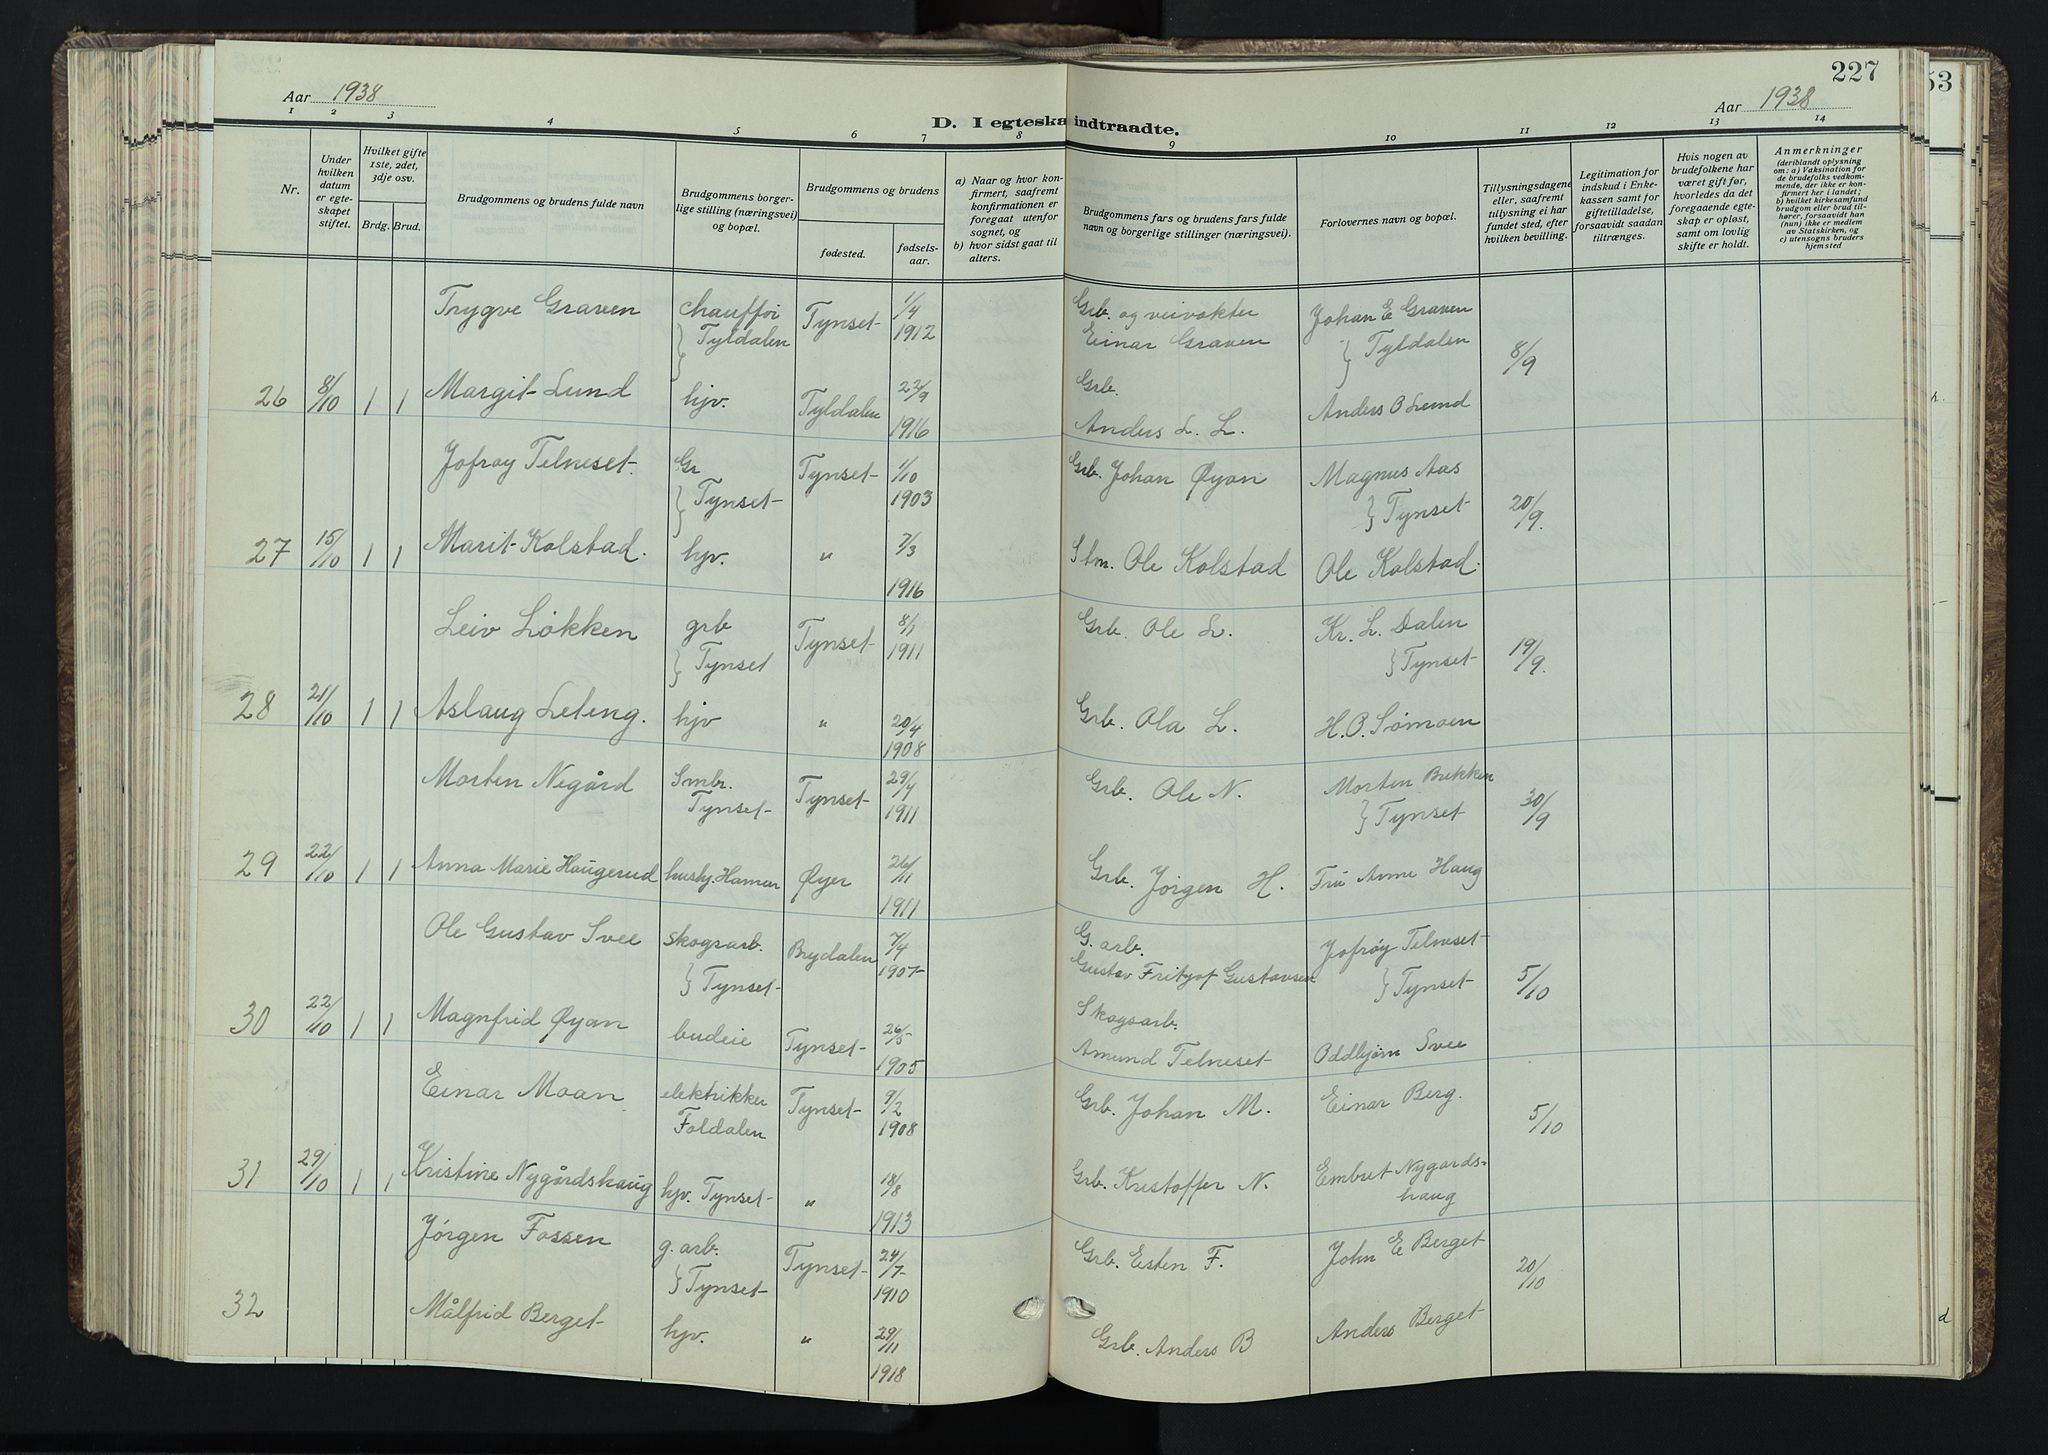 227
53
Aar 1938
Aar 1938
D. I egteska indtraadte.
1 2 3 4 5 6 7 8 9 10 11 12 13 14
Nr.
Under hvilken datum er egteskapet stiftet.
Hvilket gifte 1ste, 2det, 3dje osv.
Brdg. Brud.
Brudgommens og brudens fulde navn
Brudgommens borgerlige stilling (næringsvei) og bopæl.
Brudgommens og brudens
fødested. fødselsaar.
a) Naar og hvor konfirmert, saafremt konfirmationen er foregaat utenfor sognet, og
b) hvor sidst gaat til alters.
Brudgommens fars og brudens fars fulde navn og borgerlige stillinger (næringsvei).
Forlovernes navn og bopæl.
Tillysningsdagene eller, saafremt tillysning ei har fundet sted, efter hvilken bevilling.
Legitimation for indskud i Enkekassen samt for giftetilladelse, forsaavidt saadan tiltrænges.
Hvis nogen av brudefolkene har været gift før, hvorledes da det foregaaende egteskap er opløst, samt om lovlig skifte er holdt.
Anmerkninger
(deriblandt oplysning om: a) Vaksination for de brudefolks vedkommende, der ikke er konfirmert her i landet;
b) hvilket kirkesamfund brudgom eller brud tilhører, forsaavidt han (hun) ikke er medlem av Statskirken, og
c) utensogns bruders hjemsted
Trygve Graven chauffør } Tyldalen Tynset 1/4 1912 Grb. og veivokter Einar Graven Johan E Graven } Tyldalen 8/9
26 8/10 1 1 Margit Lund hjv. Tyldalen 22/9 1916 Grb. Anders L. L. Anders O Lund
Jofrøy Telneset Gr } Tynset Tynset 1/10 1903 Grb. Johan Øyan Magnus Aas } Tynset 20/9.
27 15/10 1 1 Marit Kolstad. hjv. " 7/3 1916 Stm. Ole Kolstad Ole Kolstad.
Leiv Løkken grb } Tynset Tynset 8/1 1911 Grb. Ole L. Kr. L. Dalen } Tynset 19/9.
28 21/10 1 1 Aslaug Leteng. hjv " 20/4 1908 Grb. Ola L. H. O. Sømoen
Morten Negård Smbr. Tynset Tynset 29/4 1911 Grb. Ole N. Morten Brekken } Tynset 30/9
29 22/10 1 1 Anna Marie Haugerud husby. Hamar Øyer 26/11 1911 Grb. Jørgen H. Fru Anne Haug
Ole Gustav Svee skogsarb. } Tynset Brydalen 7/4 1907 G. arb. Gustav Fritjof Gustavsen Jofrøy Telneset } Tynset 5/10
30 22/10 1 1 Magnfrid Øyan budeie Tynset 26/5 1905 Skogsarb. Amund Telneset Oddbjørn Svee
Einar Moan elektrikker Foldalen Tynset 9/2 1908 Grb. Johan M. Einar Berg. 5/10
31 29/10 1 1 Kristine Nygårdshaug hjv. Tynset " 18/8 1913 Grb. Kristoffer N. Embret Nygårdshaug
Jørgen Fossen g. arb. } Tynset Tynset 24/7 1910 Grb. Esten F. John E Berget 20/10
32 Målfrid Berget hjv. " 29/11 1918 Grb. Anders B Anders Berget